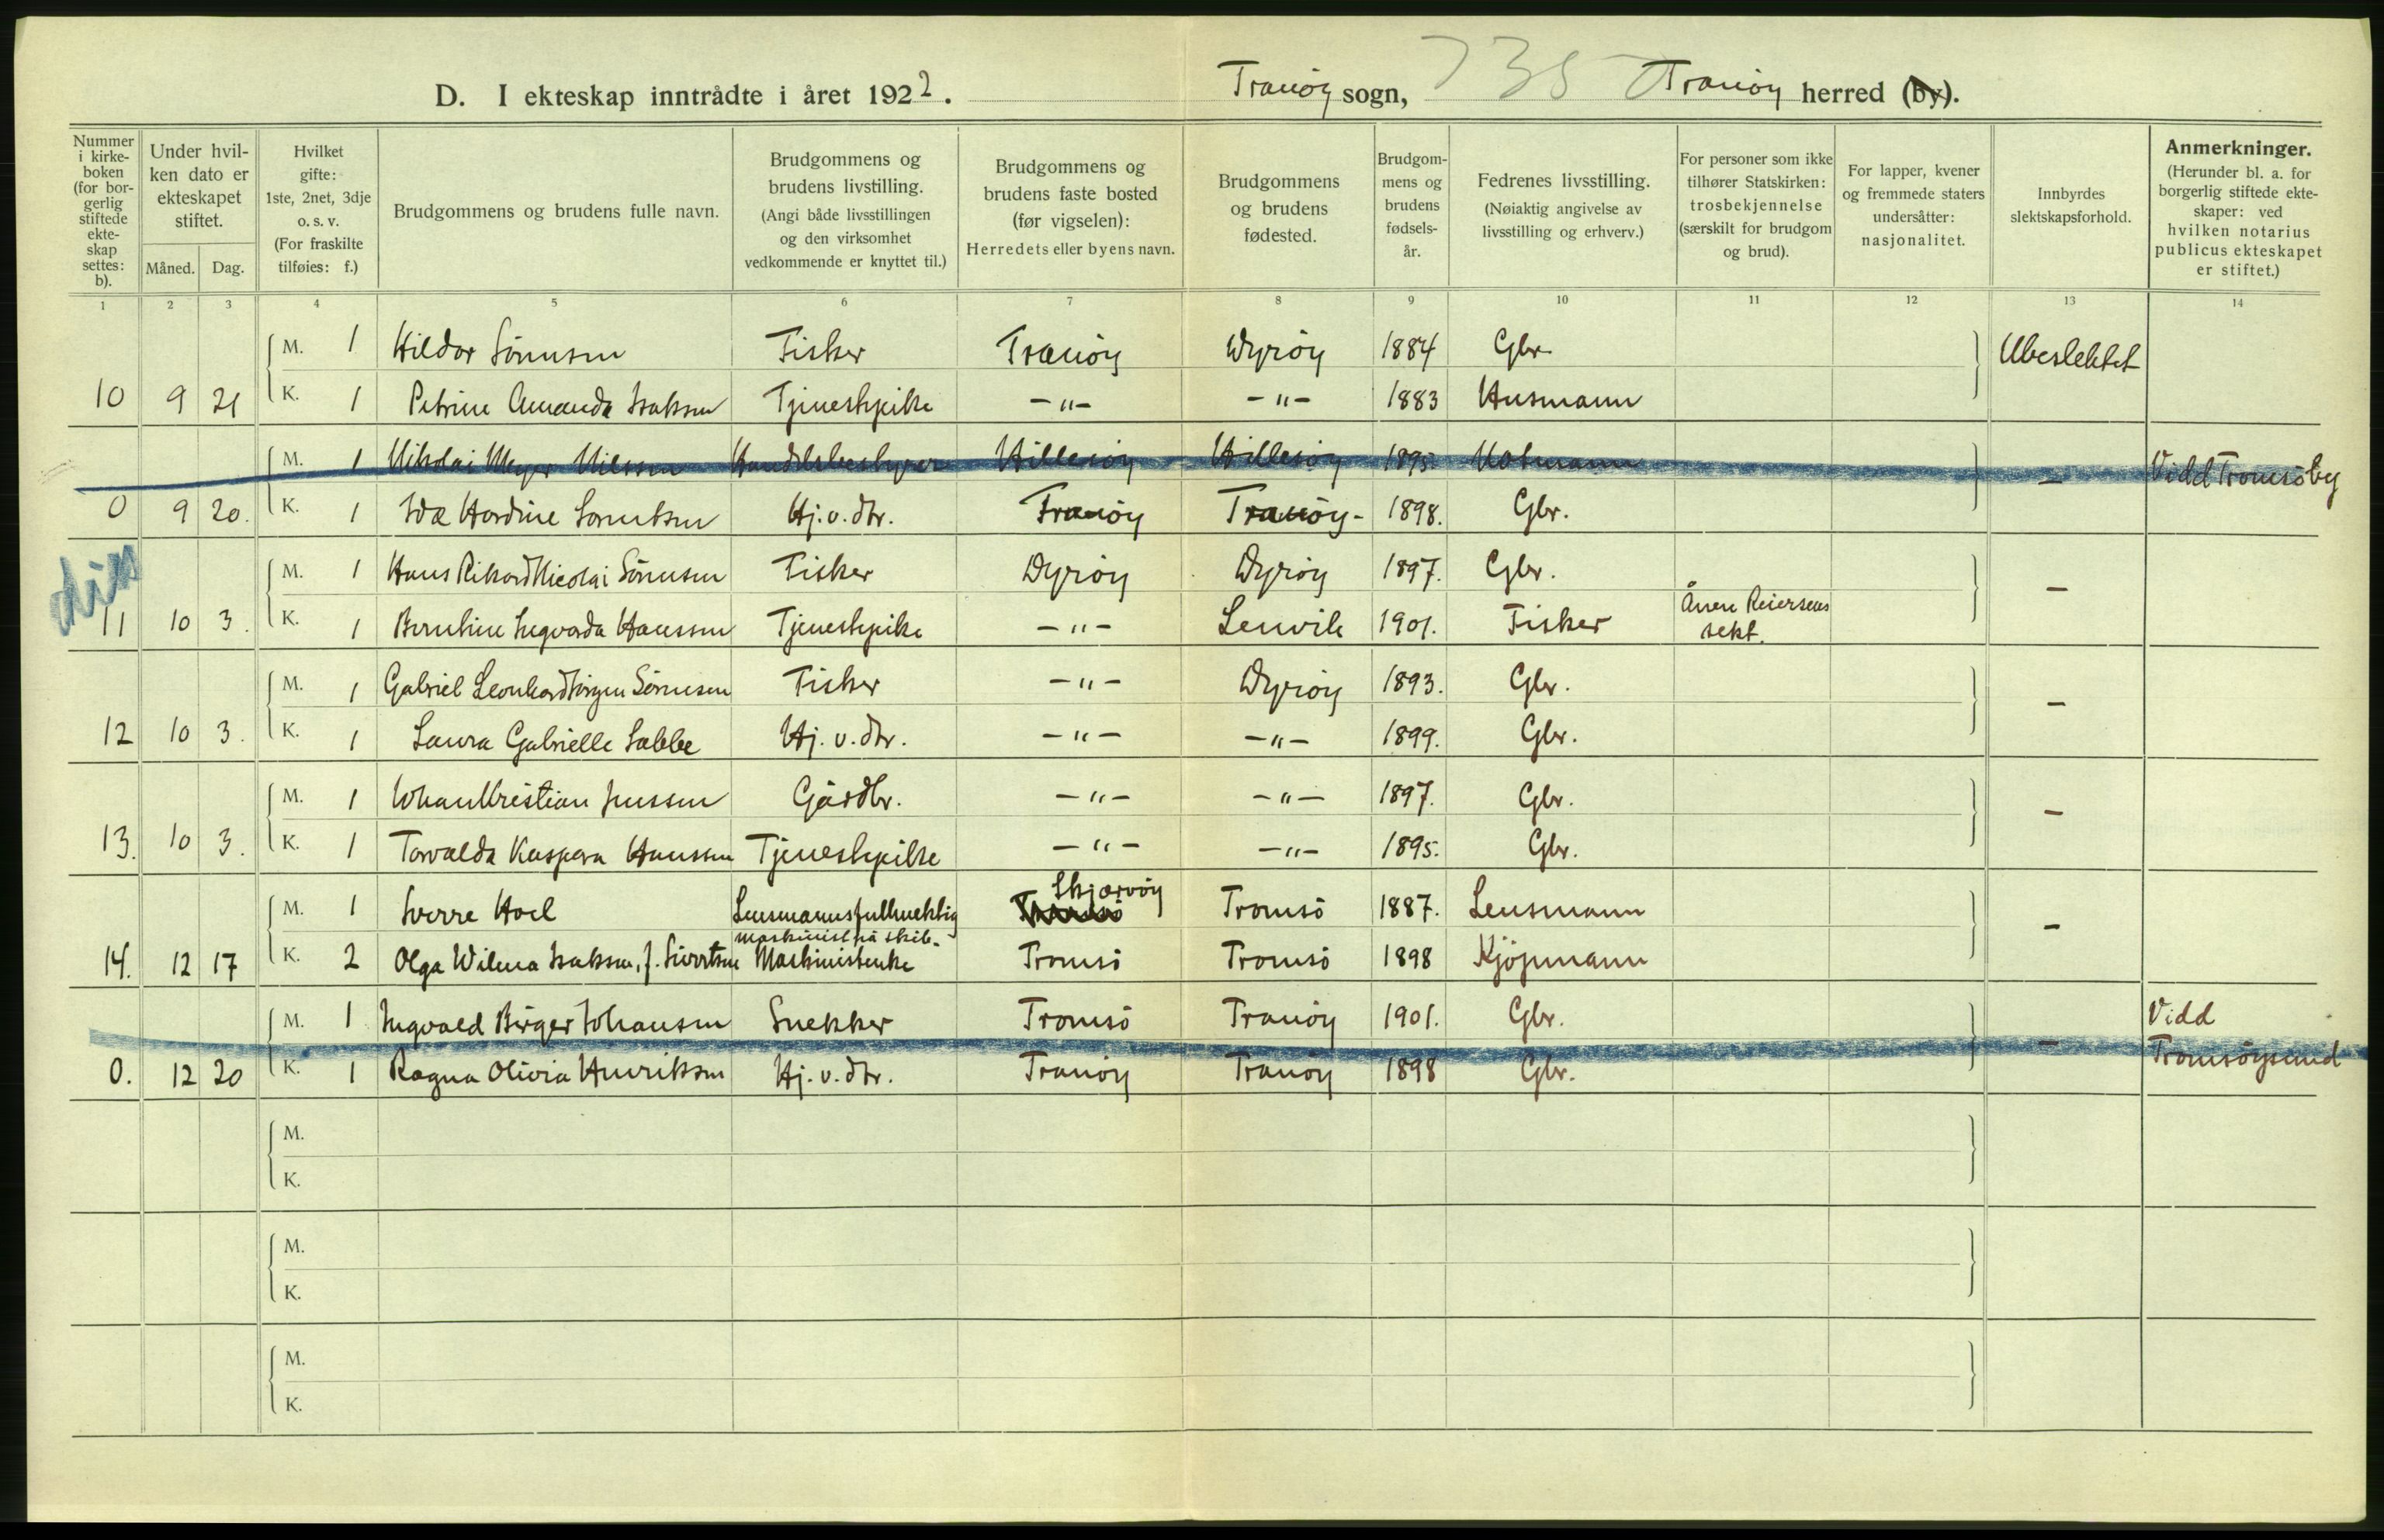 D. I ekteskap inntrådte i året 1922. Tranöy sogn, 735 Tranöy herred (by).
Nummer i kirkeboken (for borgerlig stiftede ekteskap settes: b).
Under hvilken dato er ekteskapet stiftet.
Måned. Dag.
Hvilket gifte: 1ste, 2net, 3dje o. s. v. (For fraskilte tilføies: f.)
Brudgommens og brudens fulle navn.
Brudgommens og brudens livstilling. (Angi både livsstillingen og den virksomhet vedkommende er knyttet til.)
Brudgommens og brudens faste bosted (før vigselen): Herredets eller byens navn.
Brudgommens og brudens fødested.
Brudgommens og brudens fødselsår.
Fedrenes livsstilling. (Nøiaktig angivelse av livsstilling og erhverv.)
For personer som ikke tilhører Statskirken: trosbekjennelse (særskilt for brudgom og brud).
For lapper, kvener og fremmede staters undersåtter: nasjonalitet.
Innbyrdes slektskapsforhold.
Anmerkninger. (Herunder bl. a. for borgerlig stiftede ekteskaper: ved hvilken notarius publicus ekteskapet er stiftet.)
1 2 3 4 5 6 7 8 9 10 11 12 13 14
M. 1 Hildor Sörensen Fisker Tranöy Dyröy 1884 Gbr. Ubeslektet
10 9 21 K. 1 Petrine Amanda Isaksen Tjenestepike -"- -"- 1883 Husmann
M. 1 Nikolai Meyer Nilssen Handelsbestyrer Hillesöy Hillesöy 1895. - Vidd Tromsö by
0 9 20. K. 1 Ida Hardine Hj.v.dtr. Tranöy Tranöy- 1898. Gbr.
M. 1 Hans Rikard Nicolai Sörensen Fisker Dyröy Dyröy 1897. Gbr. -
11 10 3. K. 1 Berntine Ingvarda Hanssen Tjenestepike -"- Lenvik 1901. Fisker Åren Reiersens sekt.
M. 1 Gabriel Leonhard Jörgen Sörensen Fisker -"- Dyröy 1893. Gbr. -
12 10 3. K. 1 Laura Gabrielle Hj.v.dtr. -"- -"- 1899. Gbr.
M. 1 Johan Kristian Jenssen Gårdbr. -"- -"- 1897. Gbr. -
13. 10 3. K. 1 Torvalda Kaspara Hanssen Tjenestepike -"- -"- 1895. Gbr.
M. 1 Sverre Hoel Lensmannsfullmektig Skjervöy Tromsö 1887. Lensmann -
maskinist på skib.
14. 12 17 K. 2 Olga Wilma Isaksen, f. Sivertsen Maskinistenke Tromsö Tromsö 1898 Kjöpmann
M. 1 Ingvald Birger Johansen Snekker Tromsö Tranöy 1901. Gbr. - Vidd
0. 12 20 K. 1 Ragna Olivia Henriksen Hj.v.dtr. Tranöy Tranöy 1898 Gbr. Tromsöysund
M.
K.
M.
K.
M.
K.